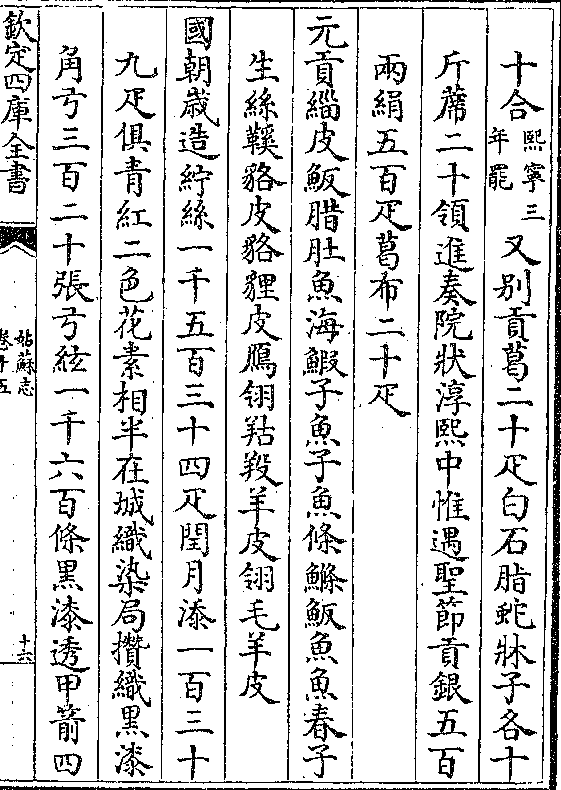 十合熙寧三年罷又别貢葛二十疋白石脂蛇牀子各十
斤蓆二十領進奏院狀淳熙中惟遇聖節貢銀五百
兩絹五百疋葛布二十疋
元貢緇皮鯸腊肚魚海鰕子魚子魚條鰷鯸魚魚春子
生絲鞵貉皮貉貍皮鴈翎羖羊皮翎毛羊皮
國朝歳造紵絲一千五百三十四疋閏月添一百三十
九疋俱青紅二色花素相半在城織染局攢織黑漆
角弓三百二十張弓絃一千六百條黑漆透甲箭四
欽定四庫全書
姑蘇志
卷十五
十六